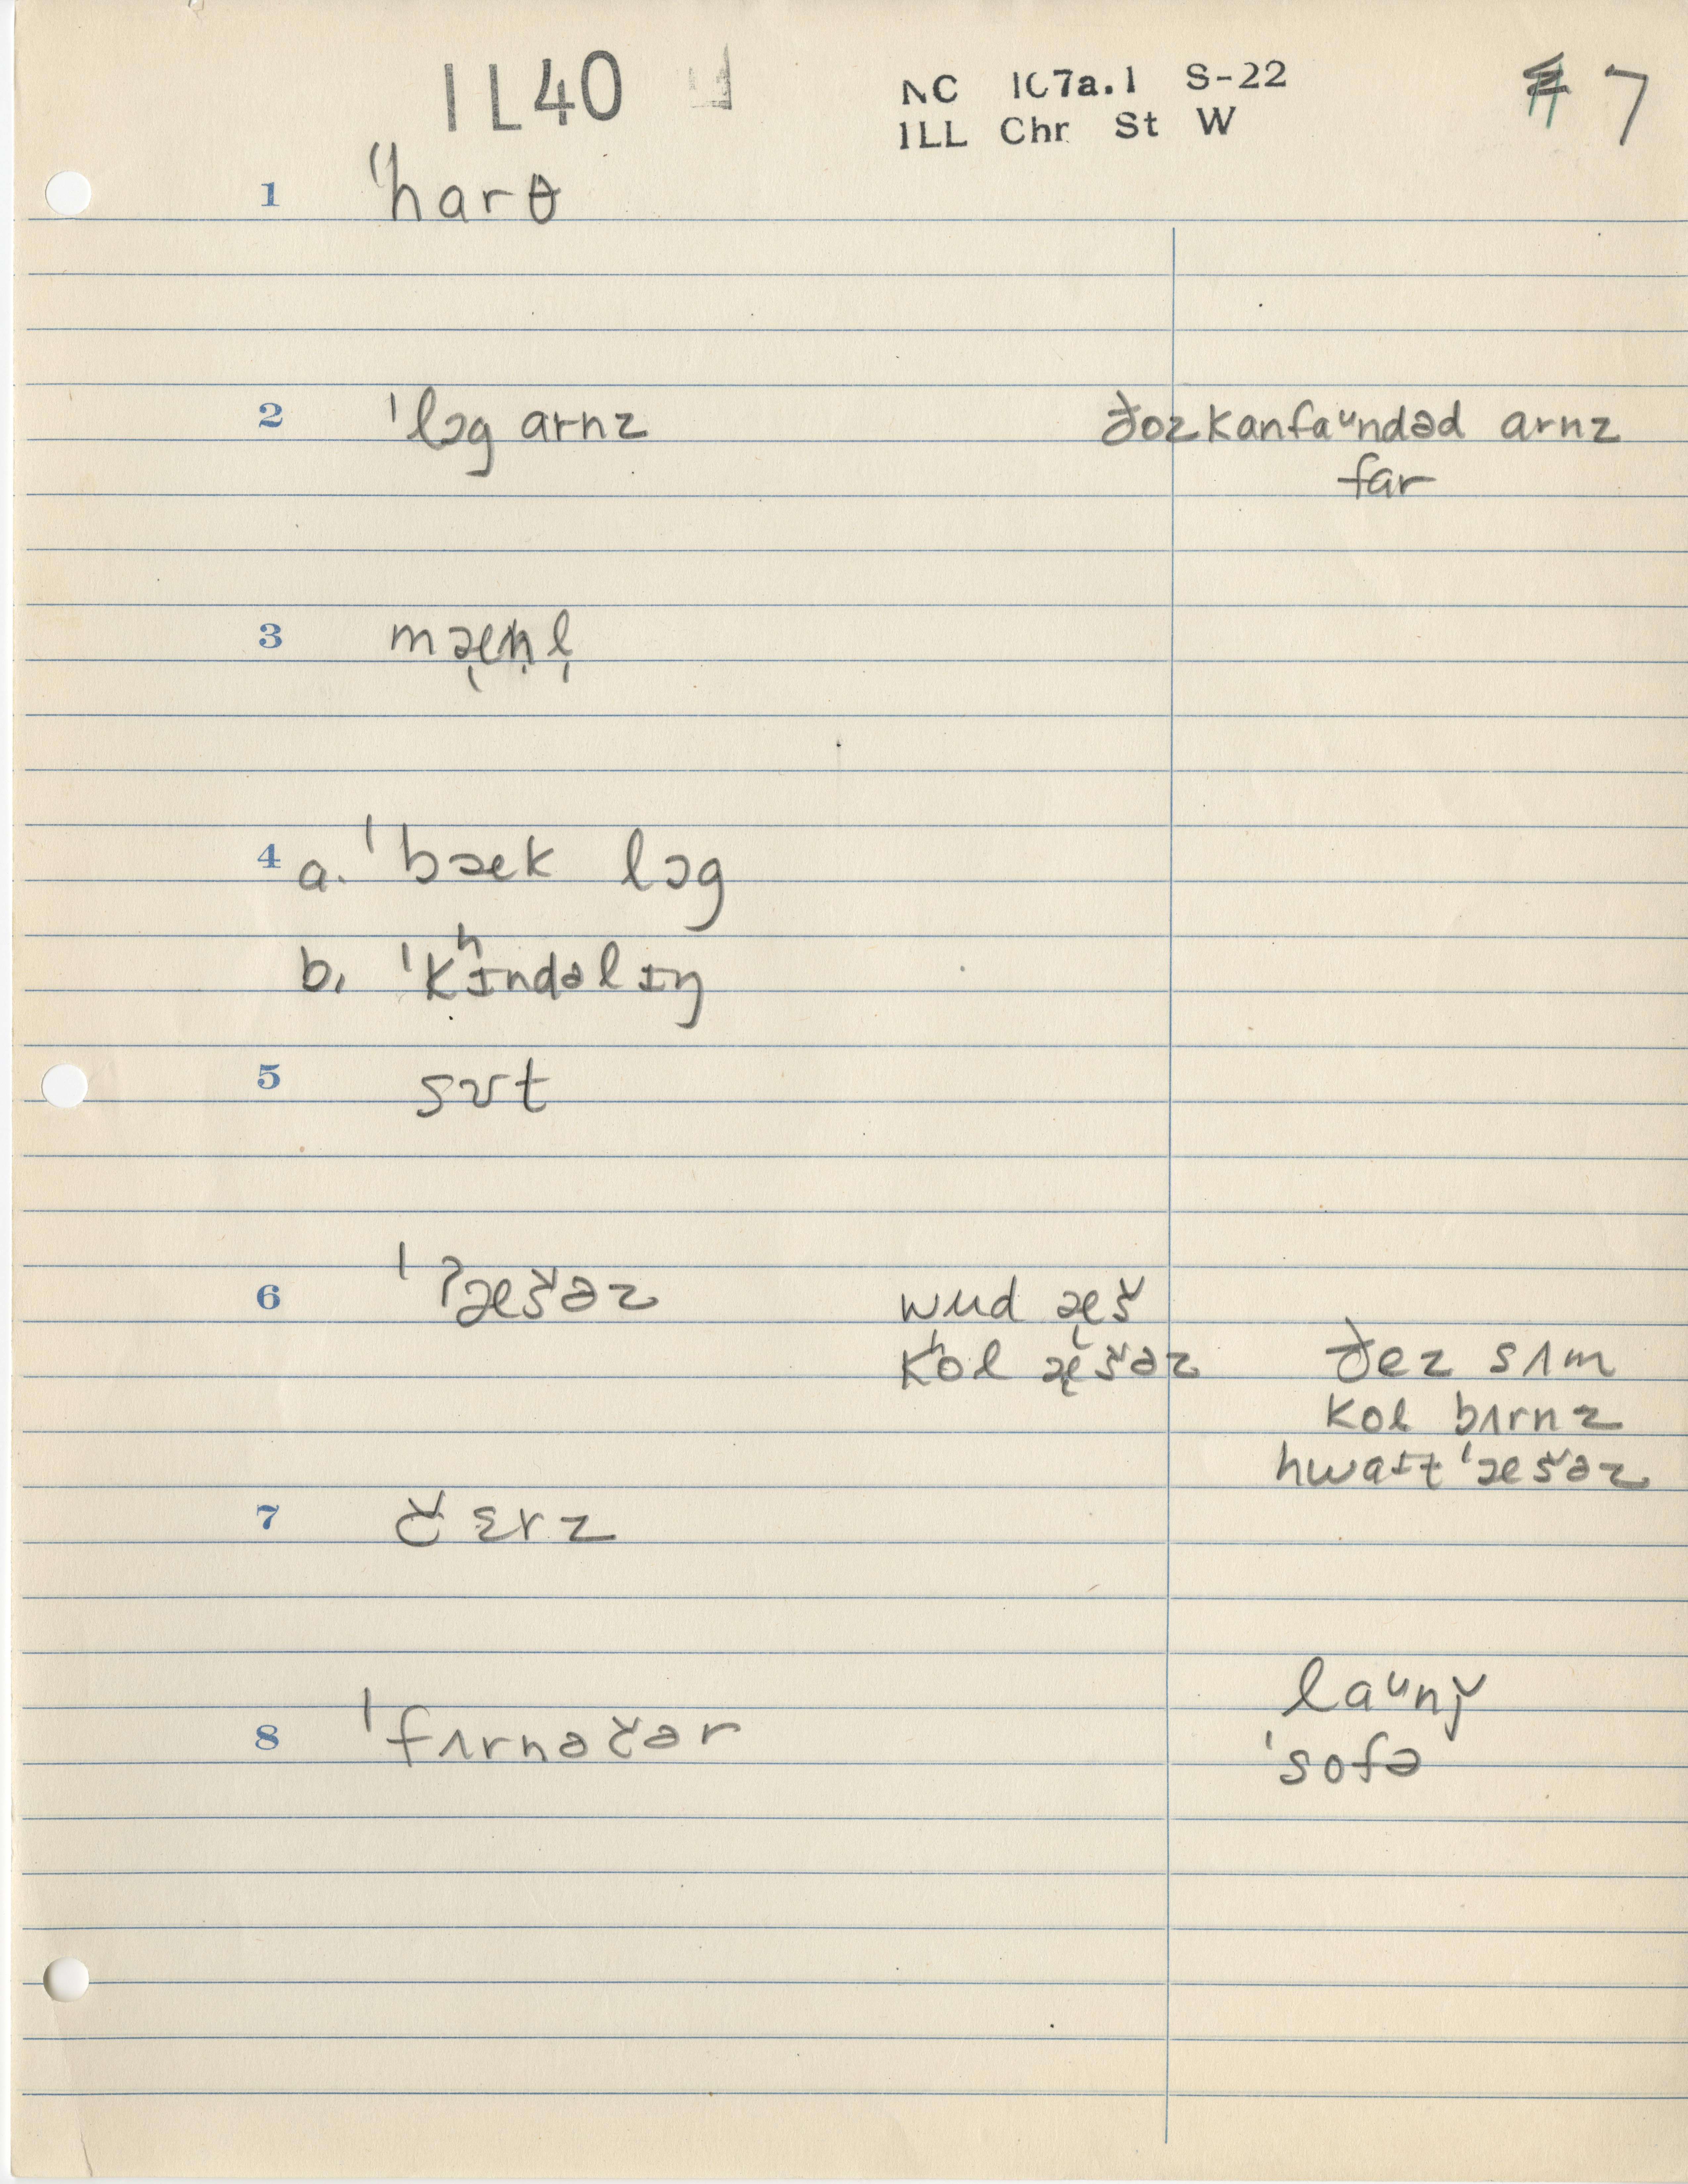 IL40
NC 107a.1 S-22
ILL Chr St W
# 7
1 ˈharθ
2 ˈlɔg arnz ðozkanfaᵘndəd arnz
far
3 mæ̨nl̩
4 a. ˈbæk lɔg
b. ˈkʰɪndəlɪŋ
5 sʊt
6 ˈʔæšəz wud æ̨š
kʰol æ̨šəz ðez sʌm
kol bʌrnz
hwaɪt ˈæšəz
7 čɛrz
8 ˈfʌrnəčər laᵘnǰ
ˈsofə